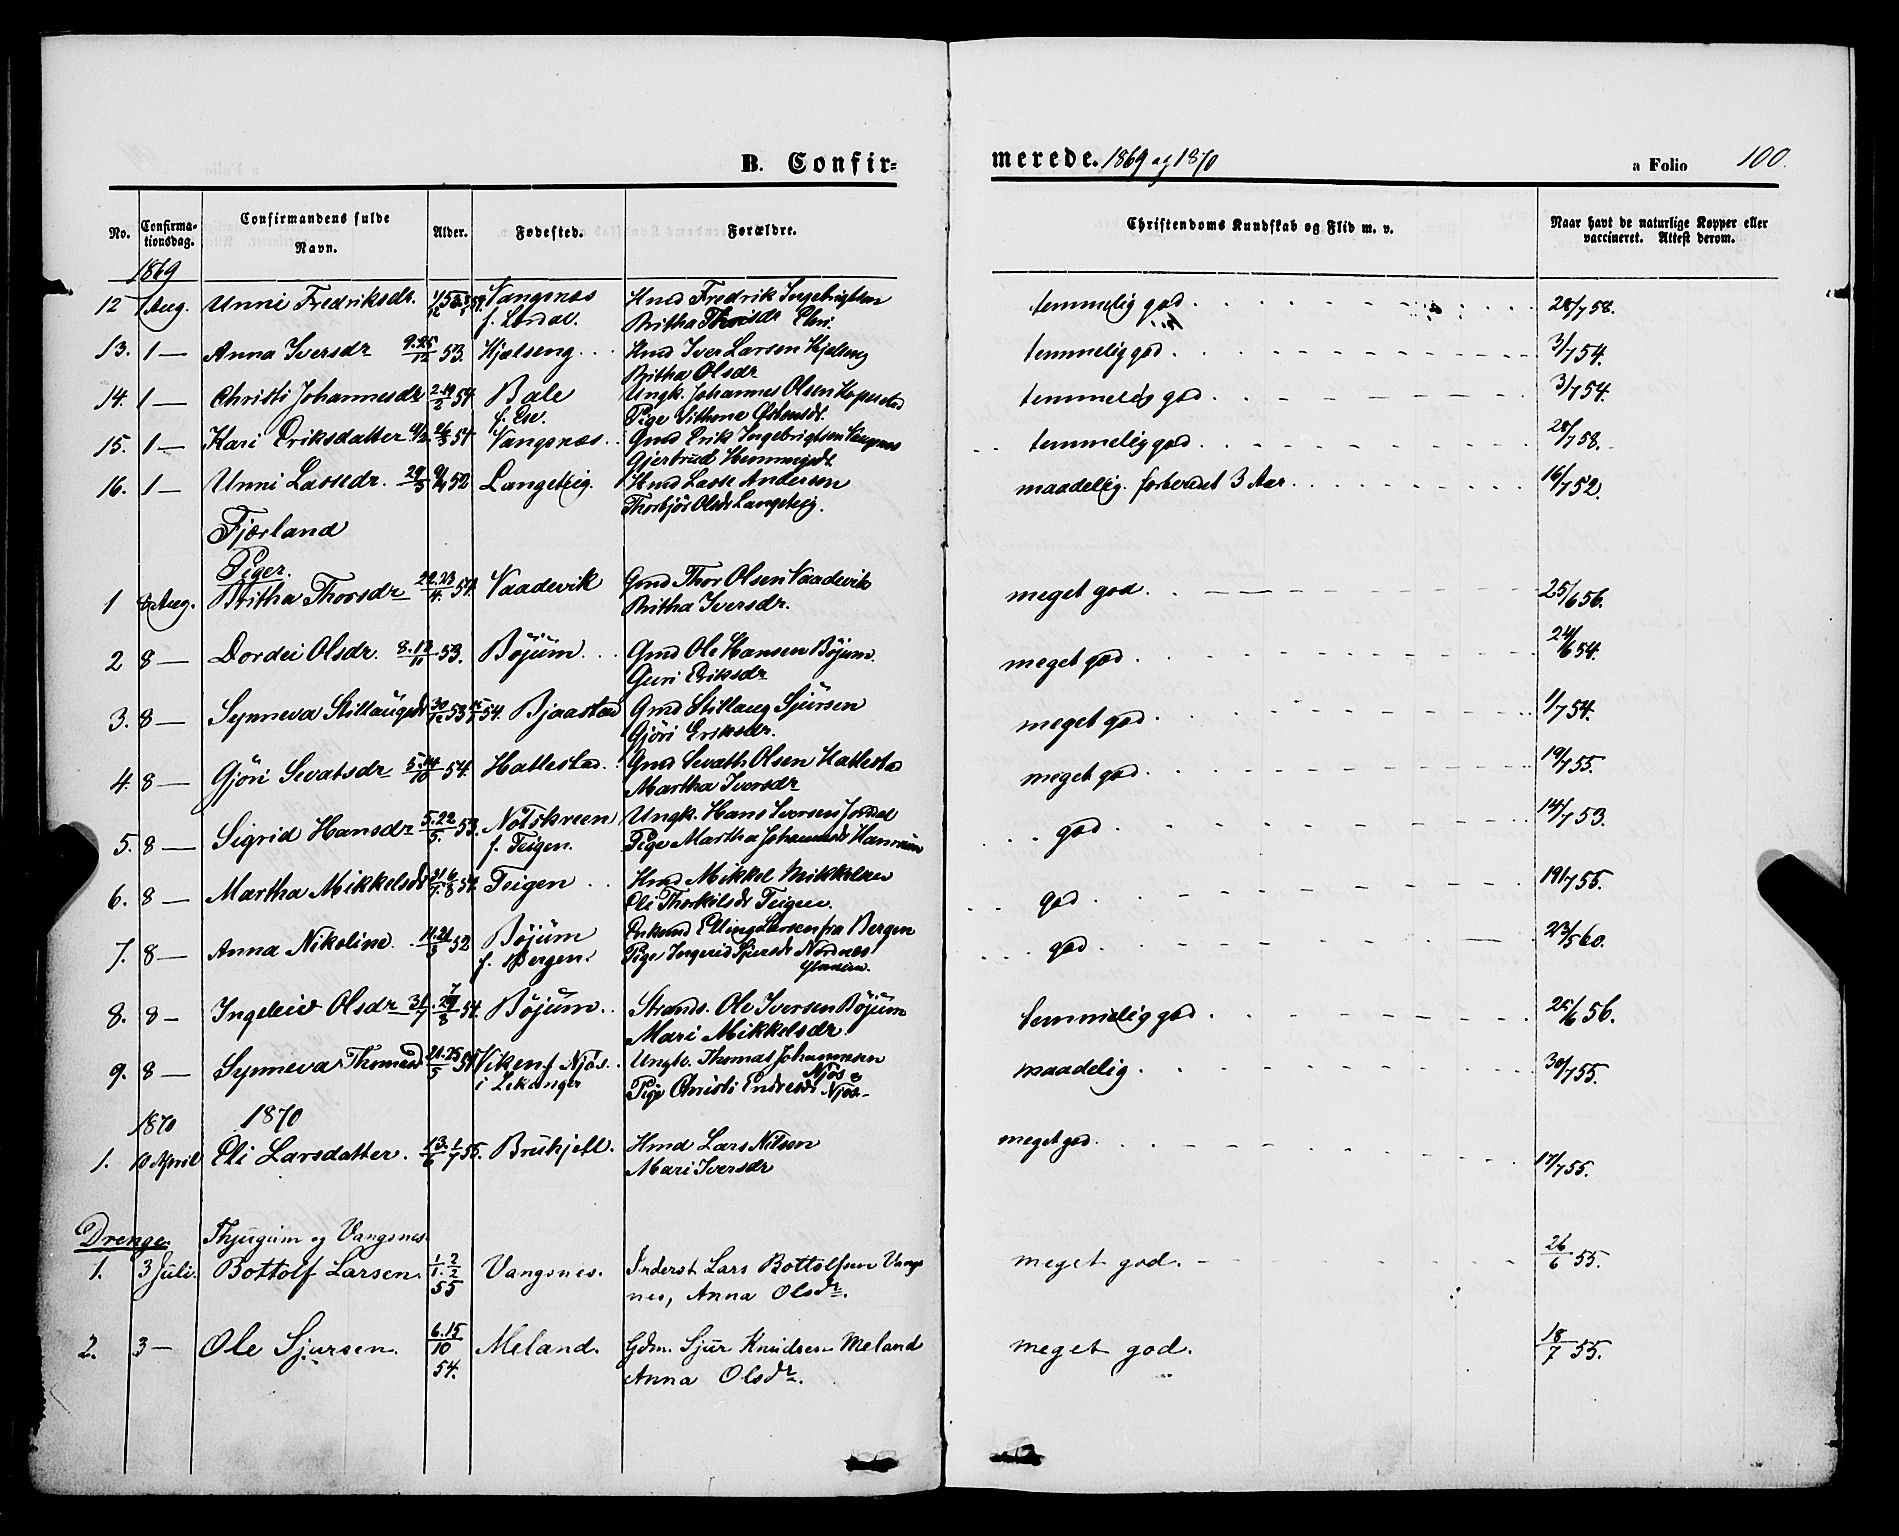 B. Confirmerede. 1869 og 1870 a Folio 100.
No. Confirmationsdag. Confirmandens fulde Navn. Alder. Fødested. Forældre. Christendoms Kundskab og Flid m. v. Naar havt de naturlige Kopper eller vaccineret. Attest derom.
1869
12 1 Aug. Unni Fredriksdr. Vangsnæs Hmd Fredrik Ingebrigtsen temmelig god 28/7 58.
Britha Thorisdr
13. 1 — Anna Iversdr 9.25/12 53. Kjelseng Hmd Iver Larsen Kjelseng temmelig god 3/7 54.
Britha Olsdr
14. 1 — Christi Johannesdr 2.19/2 54 Bale Ungk. Johannes Olsen Hopperstad temmelig god 3/7 54.
f. Ese. Pige
15. 1 — Kari Eriksdatter 54 Vangsnæs Gmd Erik Ingebrigtsen Vangsnes temmelig god 28/7 58.
Gjertrud
16. 1 — Unni Lassedr. 52 Langeteig. Hmd Lasse Andersen maadelig. forberedt 3 Aar 16/7 52.
Thorbjør Olsdr Langeteig.
Fjærland
Piger.
1 8 Aug. Britha Thorsdr 22.23/4. 54. Vaadevik Gmd Thor Olsen Vaadevik meget god 25/6 56.
Britha Iversdr.
2 8 — Dordei Olsdr. 8.13/11 53. Bøjum Gmd Ole Hansen Bøjum. meget god 24/6 54.
Guri Eriksdr
3. 8 — Synneva Stillaugsdr 30/12 53 54. Bjaastad Gmd Stillaug Sjursen meget god 1/7 54.
Gjöri Eriksdr.
4. 8 — Gjöri Sevatsdr 5.14/10 54. Hatlestad Gmd Sevath Olsen Hatlestad meget god 19/7 55.
Martha Iversdr
5. 8 — Sigrid Hansdr 5.22/5. 53. Notskreen Ungk. Hans Iversen Jordal god 14/7 53.
f. Teigen. Pige Martha Johannesdr
6. 8 — Martha Mikkelsdr 31/7. 6/8 54. Teigen Hmd Mikkel Mikkelsen god 19/7 55.
Eli Thorkilsdr Teigen
7. 8 — Anna Nikoline. 11.21/3 52 Bøjum Enkemd Elling Larsen fra Bergen god 23/5 60.
f. Bergen. Pige Ingerid Sjursdr Nordnes
8. 8 — Ingeleiv Olsdr 31/7 54. Bøjum Strands. Ole Iversen Bøjum temmelig god 25/6 56.
Mari Mikkelsdr
9. 8 — Synneva Thomasdr 21.25/5 54 Viken f. Njøs Ungk. Thomas Johannesen Njøs maadelig. 30/7 55.
i Lekanger Pige Christi Endresdr Njøs
1870 1870
1. 10 April Eli Larsdatter. 13./6 1/7 55. Bruhjell. Hmd Lars Nilsen meget god. 17/7 55.
Mari Iversdr
Drenge. Thjugum og Vangsnes.
1. 3 Juli. Bottolf Larsen. 1/1. 2/2 55 Vangsnes. Inderst Lars Bottolfsen Vangs meget god. 26/6 55.
nes, Anna Olsdr.
2. 3 — Ole Sjursen. 6.15/10 54. Meland. Gdm. Sjur Knudsen Meland meget god. 18/7 55.
Anna Olsdr.